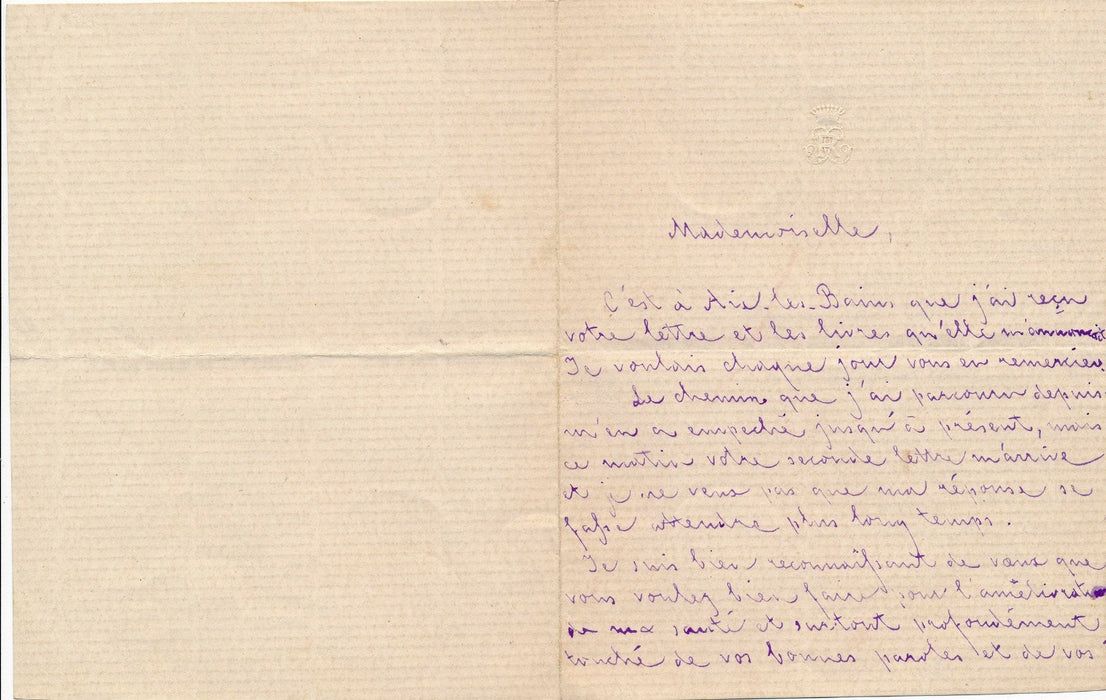 Mademoiselle,
C'est à Aix-les-Bains que j'ai reçu
votre lettre et les livres qu'elle m'annonçait
Je voulais chaque jour vous en remercier.
Le chemin que j'ai parcouru depuis
m'en a empeché jusqu'à présent, mais
ce matin votre seconde lettre m'arrive
et je ne veux pas que ma réponse se
fasse attendre plus long temps.
Je suis bien reconnaissant de vœux que
vous voulez bien faire pour l'amélioration
de ma santé et surtout profondément
touché de vos bonnes paroles et de vos